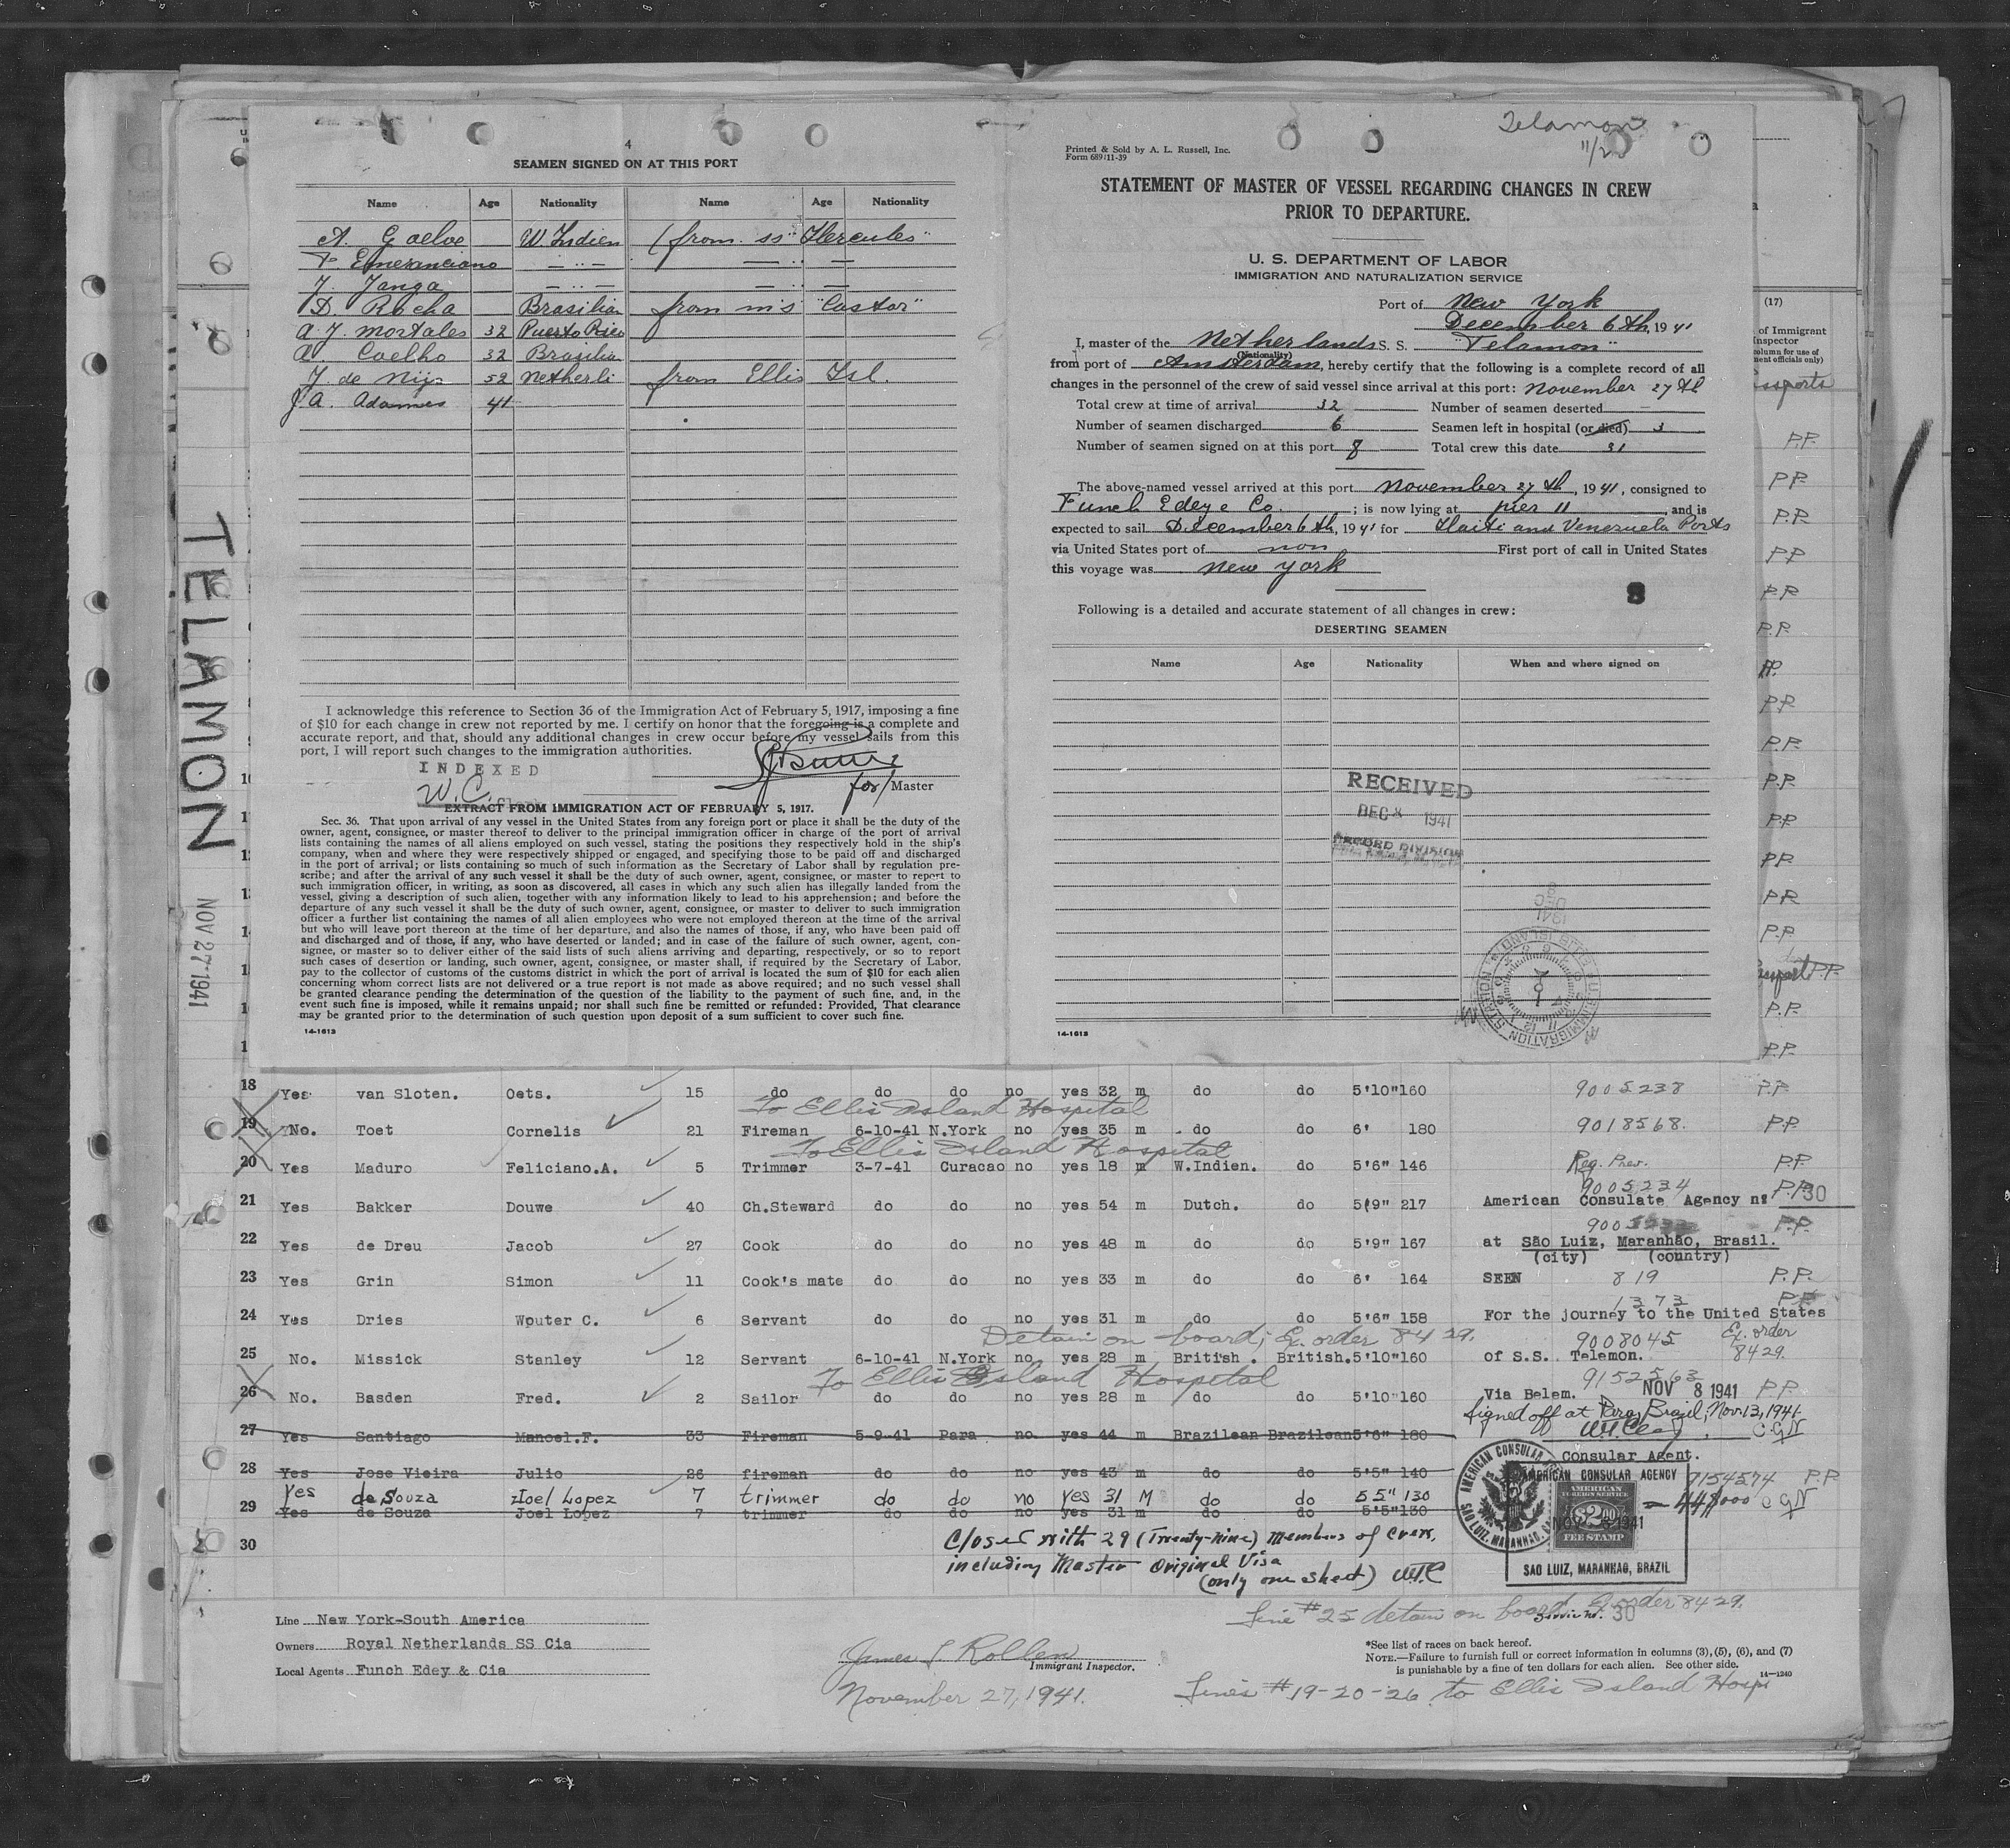 TELAMON
NOV 27 1941
4
SEAMEN SIGNED ON AT THIS PORT
Name Age Nationality Name Age Nationality
A. W. Indien (from ss "Hercules"
— " — — " —
J. Janga — " — — " —
D. Rocha Brasilian from ms "Castor"
A. J. Mortales 32 Puerto Rico
A. Coelho 32 Brasilia
J. de Nijs 52 Netherl. from Ellis Isl.
J. A. Adames 41
I acknowledge this reference to Section 36 of the Immigration Act of February 5, 1917, imposing a fine
of $10 for each change in crew not reported by me. I certify on honor that the foregoing is a complete and
accurate report, and that, should any additional changes in crew occur before my vessel sails from this
port, I will report such changes to the immigration authorities.
INDEXED
W.C.
for/Master
EXTRACT FROM IMMIGRATION ACT OF FEBRUARY 5, 1917.
Sec. 36. That upon arrival of any vessel in the United States from any foreign port or place it shall be the duty of the
owner, agent, consignee, or master thereof to deliver to the principal immigration officer in charge of the port of arrival
lists containing the names of all aliens employed on such vessel, stating the positions they respectively hold in the ship's
company, when and where they were respectively shipped or engaged, and specifying those to be paid off and discharged
in the port of arrival; or lists containing so much of such information as the Secretary of Labor shall by regulation pre-
scribe; and after the arrival of any such vessel it shall be the duty of such owner, agent, consignee, or master to report to
such immigration officer, in writing, as soon as discovered, all cases in which any such alien has illegally landed from the
vessel, giving a description of such alien, together with any information likely to lead to his apprehension; and before the
departure of any such vessel it shall be the duty of such owner, agent, consignee, or master to deliver to such immigration
officer a further list containing the names of all alien employees who were not employed thereon at the time of the arrival
but who will leave port thereon at the time of her departure, and also the names of those, if any, who have been paid off
and discharged and of those, if any, who have deserted or landed; and in case of the failure of such owner, agent, con-
signee, or master so to deliver either of the said lists of such aliens arriving and departing, respectively, or so to report
such cases of desertion or landing, such owner, agent, consignee, or master shall, if required by the Secretary of Labor,
pay to the collector of customs of the customs district in which the port of arrival is located the sum of $10 for each alien
concerning whom correct lists are not delivered or a true report is not made as above required; and no such vessel shall
be granted clearance pending the determination of the question of the liability to the payment of such fine, and, in the
event such fine is imposed, while it remains unpaid; nor shall such fine be remitted or refunded: Provided, That clearance
may be granted prior to the determination of such question upon deposit of a sum sufficient to cover such fine.
14-1613
Telamon
11/2
Printed & Sold by A. L. Russell, Inc.
Form 689/11-39
STATEMENT OF MASTER OF VESSEL REGARDING CHANGES IN CREW
PRIOR TO DEPARTURE.
U. S. DEPARTMENT OF LABOR
IMMIGRATION AND NATURALIZATION SERVICE
Port of New York
December 6th, 1941
I, master of the Netherlands S. S. "Telamon"
(Nationality)
from port of Amsterdam, hereby certify that the following is a complete record of all
changes in the personnel of the crew of said vessel since arrival at this port: November 27th
Total crew at time of arrival 32 Number of seamen deserted —
Number of seamen discharged 6 Seamen left in hospital (or died) 3
Number of seamen signed on at this port 8 Total crew this date 31
The above-named vessel arrived at this port November 27th, 1941, consigned to
Funch Edey e Co. ; is now lying at pier 11, and is
expected to sail December 6th, 1941 for Haiti and Venezuela Ports
via United States port of non First port of call in United States
this voyage was New York
8
Following is a detailed and accurate statement of all changes in crew:
DESERTING SEAMEN
Name Age Nationality When and where signed on
RECEIVED
DEC 8 1941
RECORD DIVISION
14-1613
(17)
of Immigrant
Inspector
P.P.
18 Yes van Sloten. Oets. 15 do do do no yes 32 m do do 5'10" 160 9005238 P.P.
To Ellis Island Hospital
19 No. Toet Cornelis 21 Fireman 6-10-41 N.York no yes 35 m do do 6' 180 9018568. P.P.
To Ellis Island Hospital
20 Yes Maduro Feliciano.A. 5 Trimmer 3-7-41 Curacao no yes 18 m W.Indien. do 5'6" 146 Reg. Prev. P.P.
9005234
21 Yes Bakker Douwe 40 Ch.Steward do do no yes 54 m Dutch. do 5'9" 217 American Consulate Agency nº 30
22 Yes de Dreu Jacob 27 Cook do do no yes 48 m do do 5'9" 167 at São Luiz, Maranhão, Brasil. P.P.
(city) (country)
23 Yes Grin Simon 11 Cook's mate do do no yes 33 m do do 6' 164 SEEN 819 P.P.
1373 P.P.
24 Yes Dries Wouter C. 6 Servant do do no yes 31 m do do 5'6" 158 For the journey to the United States
Detain on board, Ex. order 8429. 9008045 Ex. order
25 No. Missick Stanley 12 Servant 6-10-41 N.York no yes 28 m British. British. 5'10" 160 of S.S. Telemon. 8429.
To Ellis Island Hospital 9152563
26 No. Basden Fred. 2 Sailor do do no yes 28 m do do 5'10" 160 Via Belem. NOV 8 1941 P.P.
Signed off at Para, Brazil, Nov. 13, 1941.
27 Yes Santiago Manoel.F. 33 Fireman 5-9-41 Para no yes 44 m Brazilean Brazilean 5'6" 180 C.G.N
Consular Agent.
28 Yes Jose Vieira Julio 26 fireman do do no yes 43 m do do 5'5" 140 9154574 P.P.
Yes de Souza Joel Lopez 7 trimmer do do no yes 31 M do do 5 5" 130 C.G.N
29 Yes de Souza Joel Lopez 7 trimmer do do no yes 31 m do do 5'5" 130
30 Closed with 29 (Twenty-Nine) Members of Crew,
including Master Original Visa
(only one sheet) WTC
AMERICAN CONSULAR AGENCY
AMERICAN
FOREIGN SERVICE
$2.00
FEE STAMP
NOV 8 1941
SAO LUIZ, MARANHAO, BRAZIL
Line New York-South America
Owners Royal Netherlands SS Cia
Local Agents Funch Edey & Cia
Line #25 detain on board, Ex order 8429.
Service No. 30
James L Rollen
Immigrant Inspector.
November 27, 1941.
*See list of races on back hereof.
NOTE.—Failure to furnish full or correct information in columns (3), (5), (6), and (7)
is punishable by a fine of ten dollars for each alien. See other side.
14—1240
Lines #19-20-26 to Ellis Island Hosp